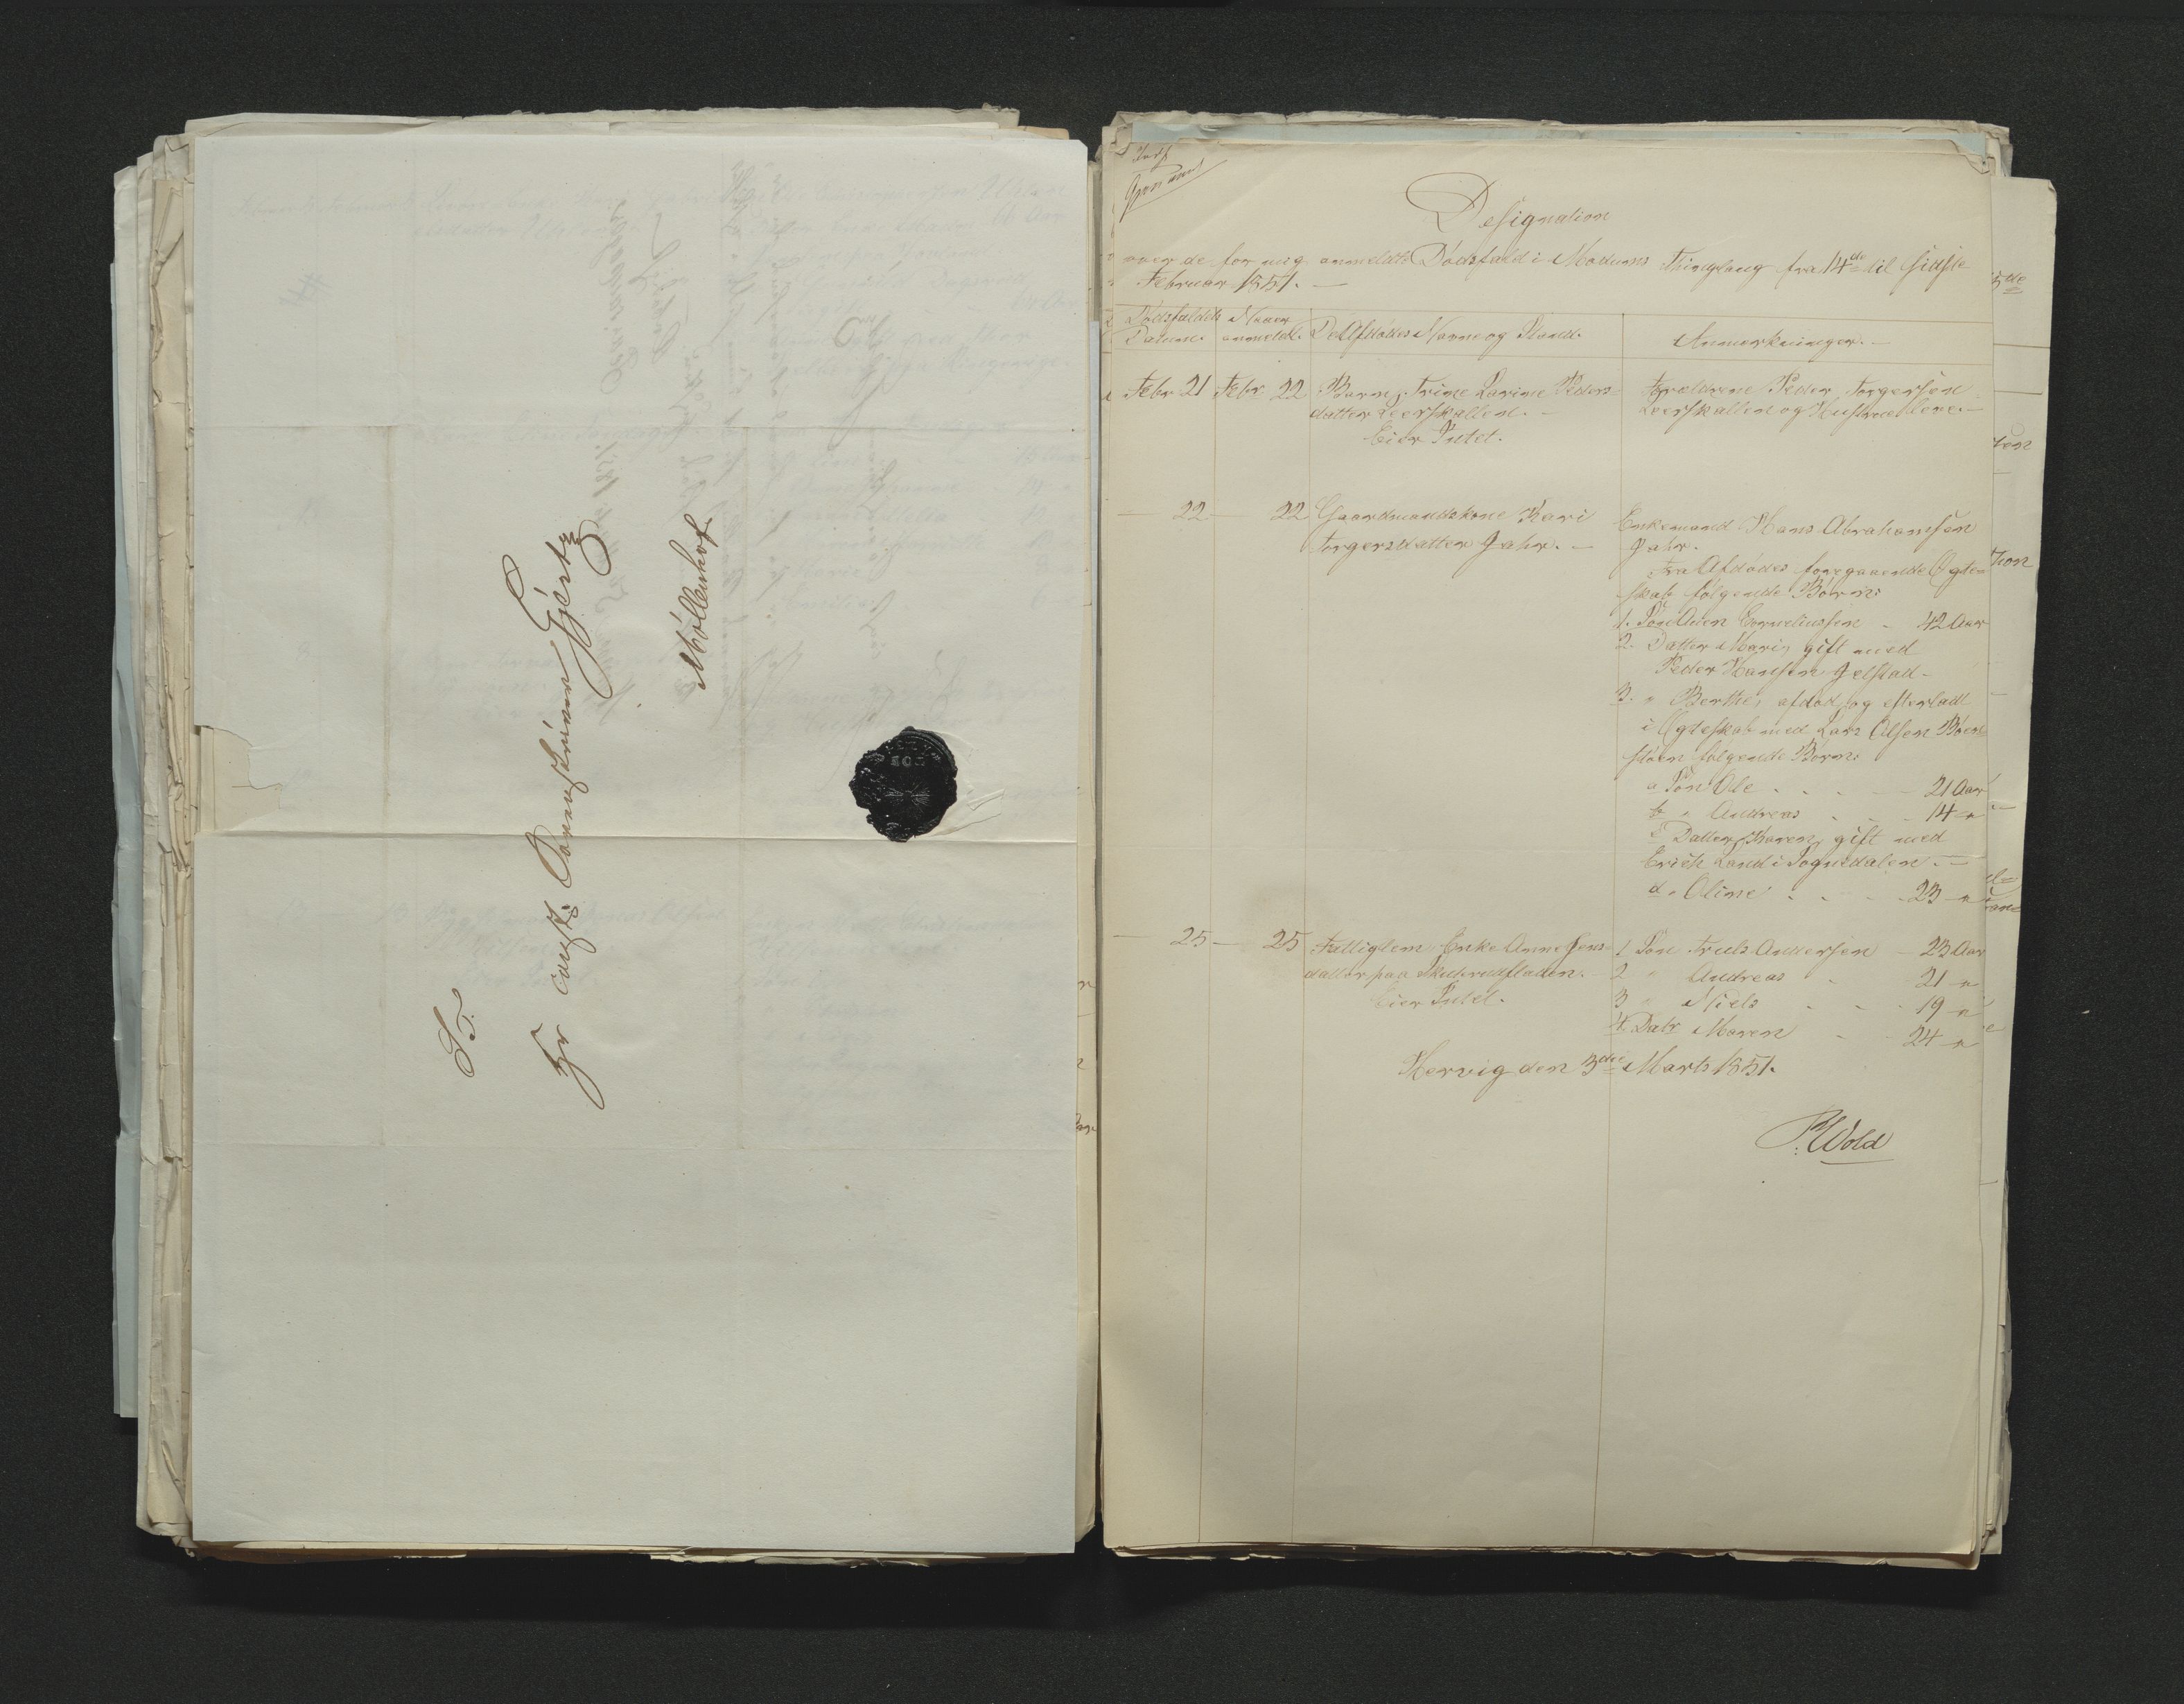 S. T.
Hr const. Sorenskriver Gjèrtz
Møllenhof.
Designation
over de for mig anmeldte Dødsfald i Modums Thinglaug fra 14de til sidste
Februar 1851. —
Dødsfaldets Datum.
Naar anmeldt.
De Afdødes Navne og Stand.
Anmerkninger. —
Febr 21 Febr 22 Barn, Trine Larine Peders-
datter Leerskallen. —
Eier Intet.
Forældrene Peder Torgersen
Leerskallen og Hustrue lever. —
— 22 — 22 Gaardmandskone Kari
Torgersdatter Jahr. —
Enkemand Hans Abrahamsen
Jahr.
Fra Afdødes foregaaende Ægte-
skab følgende Børn:
1. Søn Corneliussen - 42 Aar
2. Datter Mari, gift med
Peder Hansen Gelstad -
3. " Berthe, afdød og efterladt
i Ægteskab med Lars Olsen
følgende Børn:
a Søn Ole . . . — 21 Aar
b " Andreas . . . 14 "
c Datter Karen, gift med
Erich Land i Sognedalen. —
d " Oline . . . 23 "
— 25 — 25 Fattiglem Enke Anne Jens-
datter paa
Eier Intet.
1 Søn Truls Andersen — 23 Aar
2 " Andreas - 21 "
3 " Niels . . . 19 "
4. Datr Maren - 24 "
Hervig den 3die Marts 1851.
P. Wold